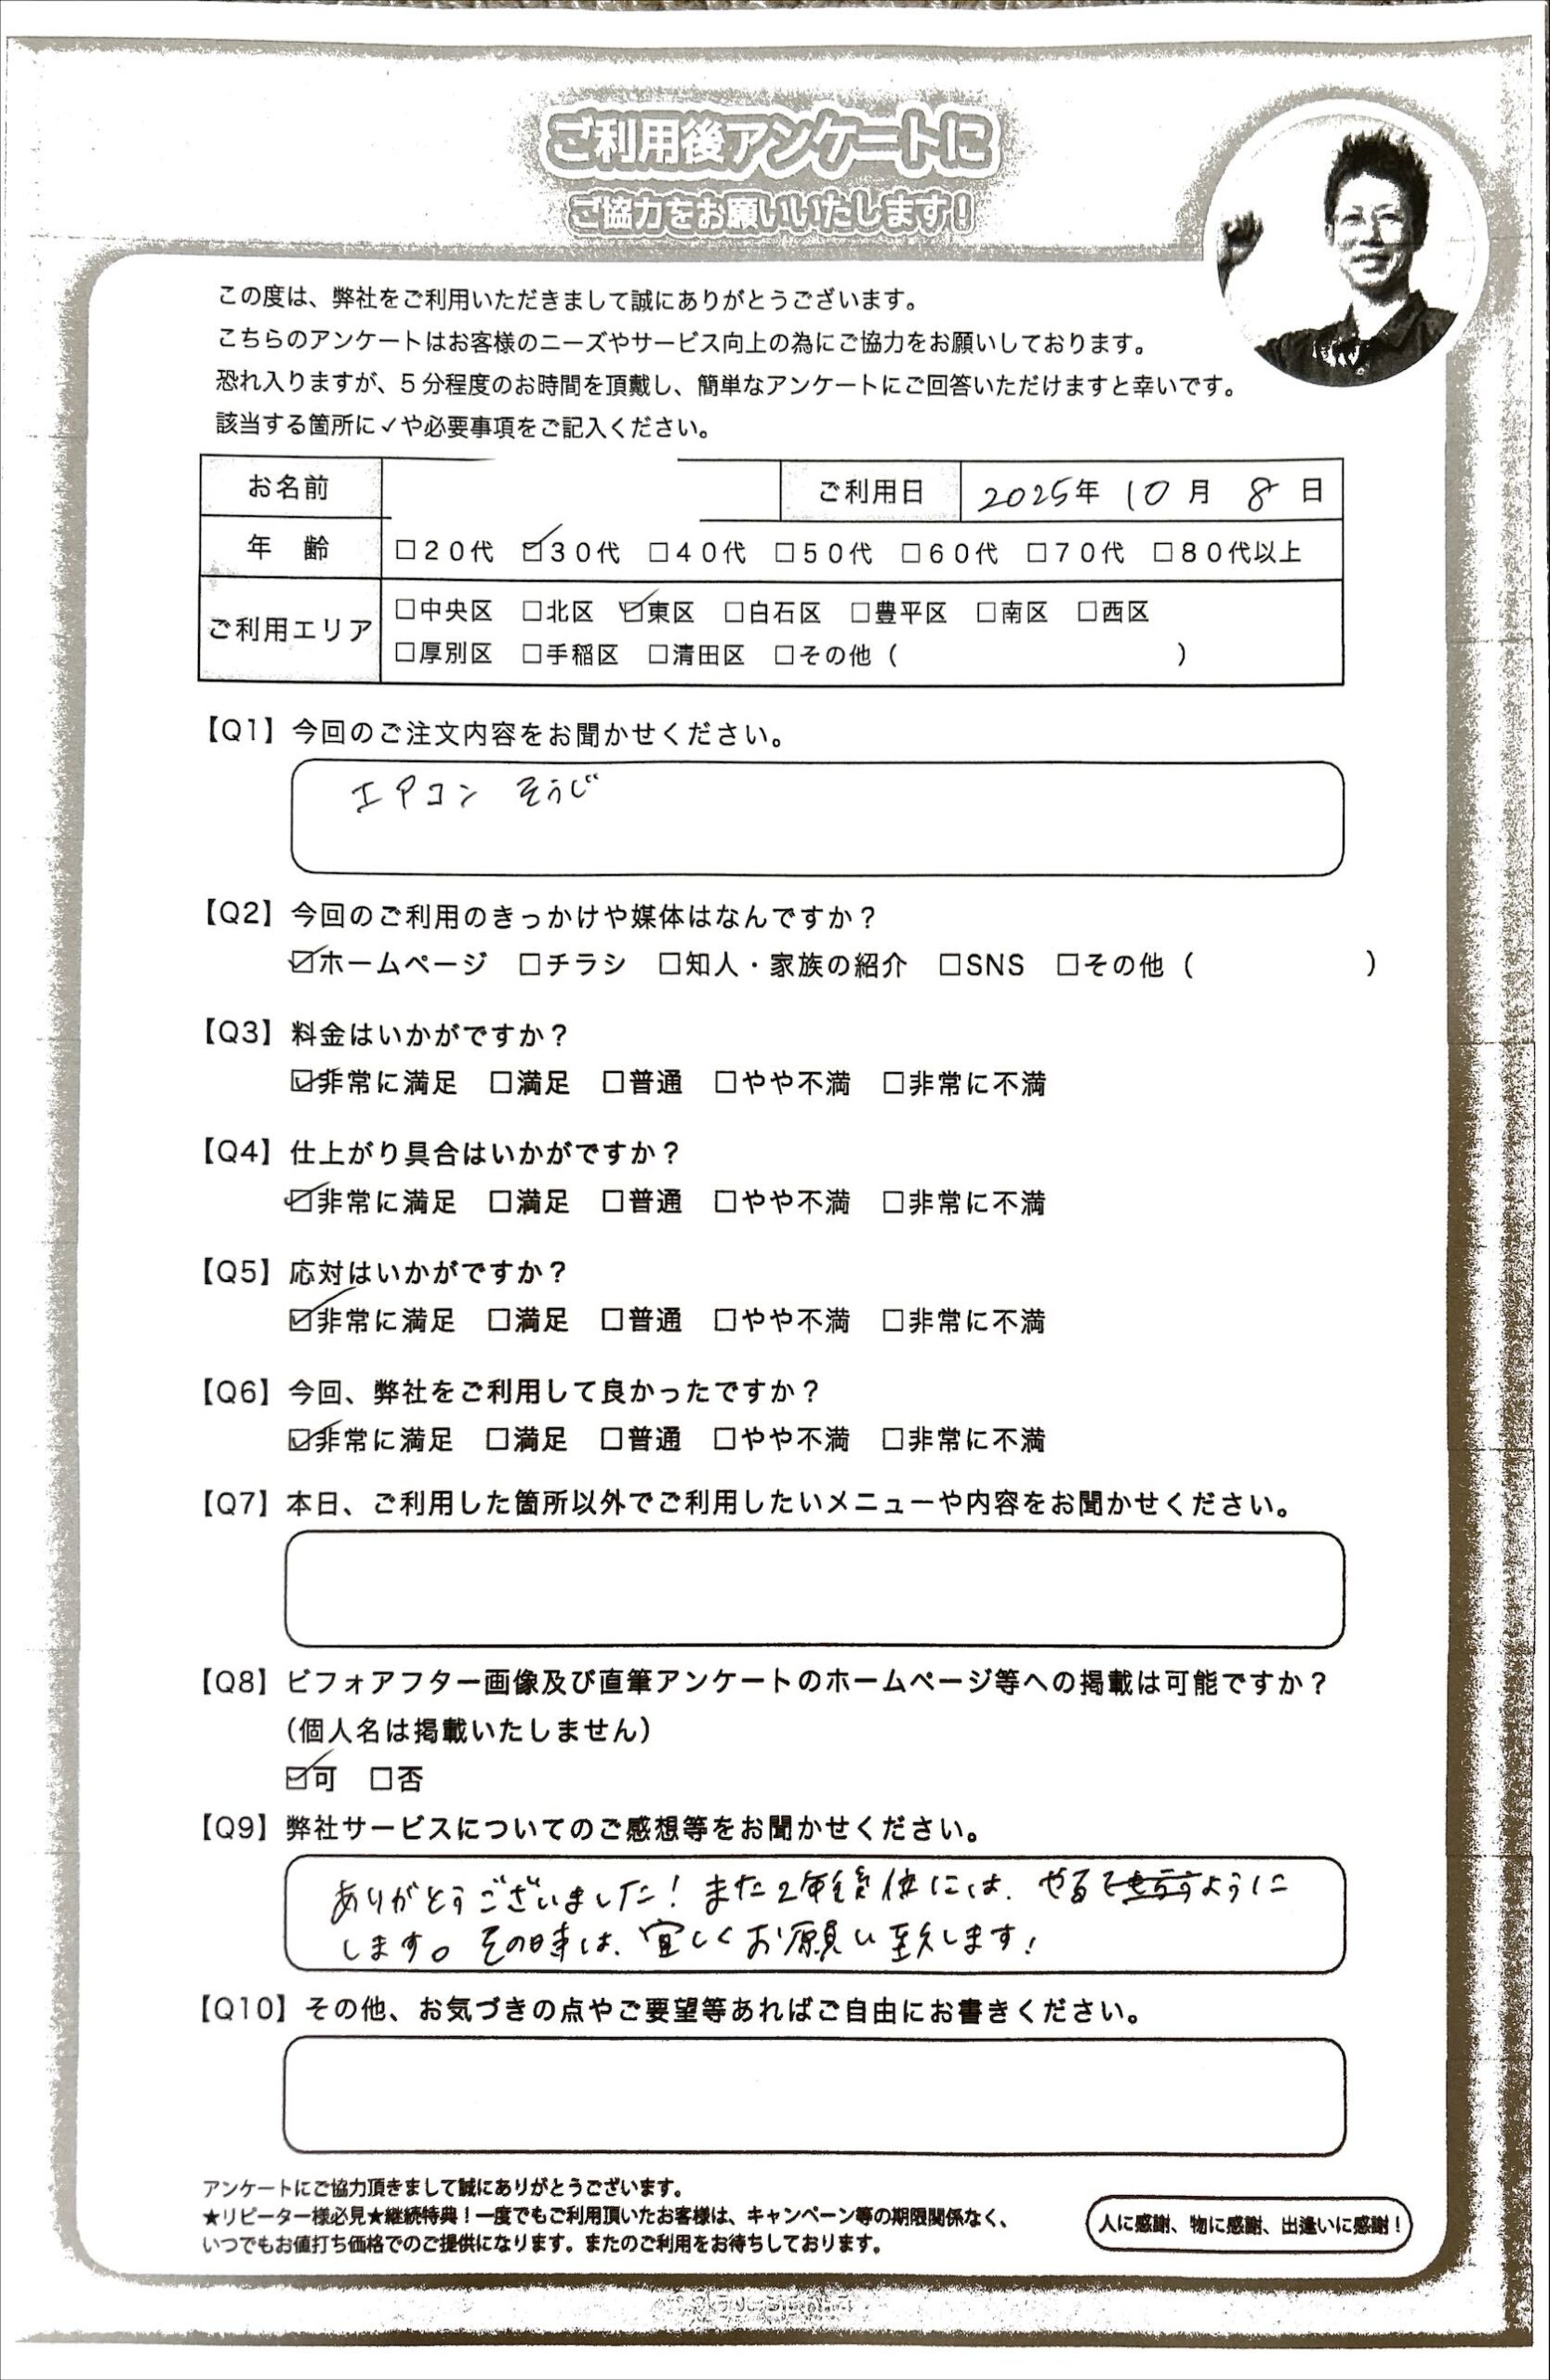 ご利用後アンケートに
ご協力をお願いいたします!
この度は、弊社をご利用いただきまして誠にありがとうございます。
こちらのアンケートはお客様のニーズやサービス向上の為にご協力をお願いしております。
恐れ入りますが、5分程度のお時間を頂戴し、簡単なアンケートにご回答いただけますと幸いです。
該当する箇所に✓や必要事項をご記入ください。
お名前 ご利用日 2025年 10月 8日
年 齢 □20代 ☑30代 □40代 □50代 □60代 □70代 □80代以上
ご利用エリア □中央区 □北区 ☑東区 □白石区 □豊平区 □南区 □西区
□厚別区 □手稲区 □清田区 □その他( )
【Q1】今回のご注文内容をお聞かせください。
エアコン そうじ
【Q2】今回のご利用のきっかけや媒体はなんですか?
☑ホームページ □チラシ □知人・家族の紹介 □SNS □その他( )
【Q3】料金はいかがですか?
☑非常に満足 □満足 □普通 □やや不満 □非常に不満
【Q4】仕上がり具合はいかがですか?
☑非常に満足 □満足 □普通 □やや不満 □非常に不満
【Q5】応対はいかがですか?
☑非常に満足 □満足 □普通 □やや不満 □非常に不満
【Q6】今回、弊社をご利用して良かったですか?
☑非常に満足 □満足 □普通 □やや不満 □非常に不満
【Q7】本日、ご利用した箇所以外でご利用したいメニューや内容をお聞かせください。
【Q8】ビフォアフター画像及び直筆アンケートのホームページ等への掲載は可能ですか?
(個人名は掲載いたしません)
☑可 □否
【Q9】弊社サービスについてのご感想等をお聞かせください。
ありがとうございました! また2年後位には、やるように
します。その時は、宜しくお願い致します!
【Q10】その他、お気づきの点やご要望等あればご自由にお書きください。
アンケートにご協力頂きまして誠にありがとうございます。
★リピーター様必見★継続特典!一度でもご利用頂いたお客様は、キャンペーン等の期限関係なく、
いつでもお値打ち価格でのご提供になります。またのご利用をお待ちしております。
人に感謝、物に感謝、出逢いに感謝!